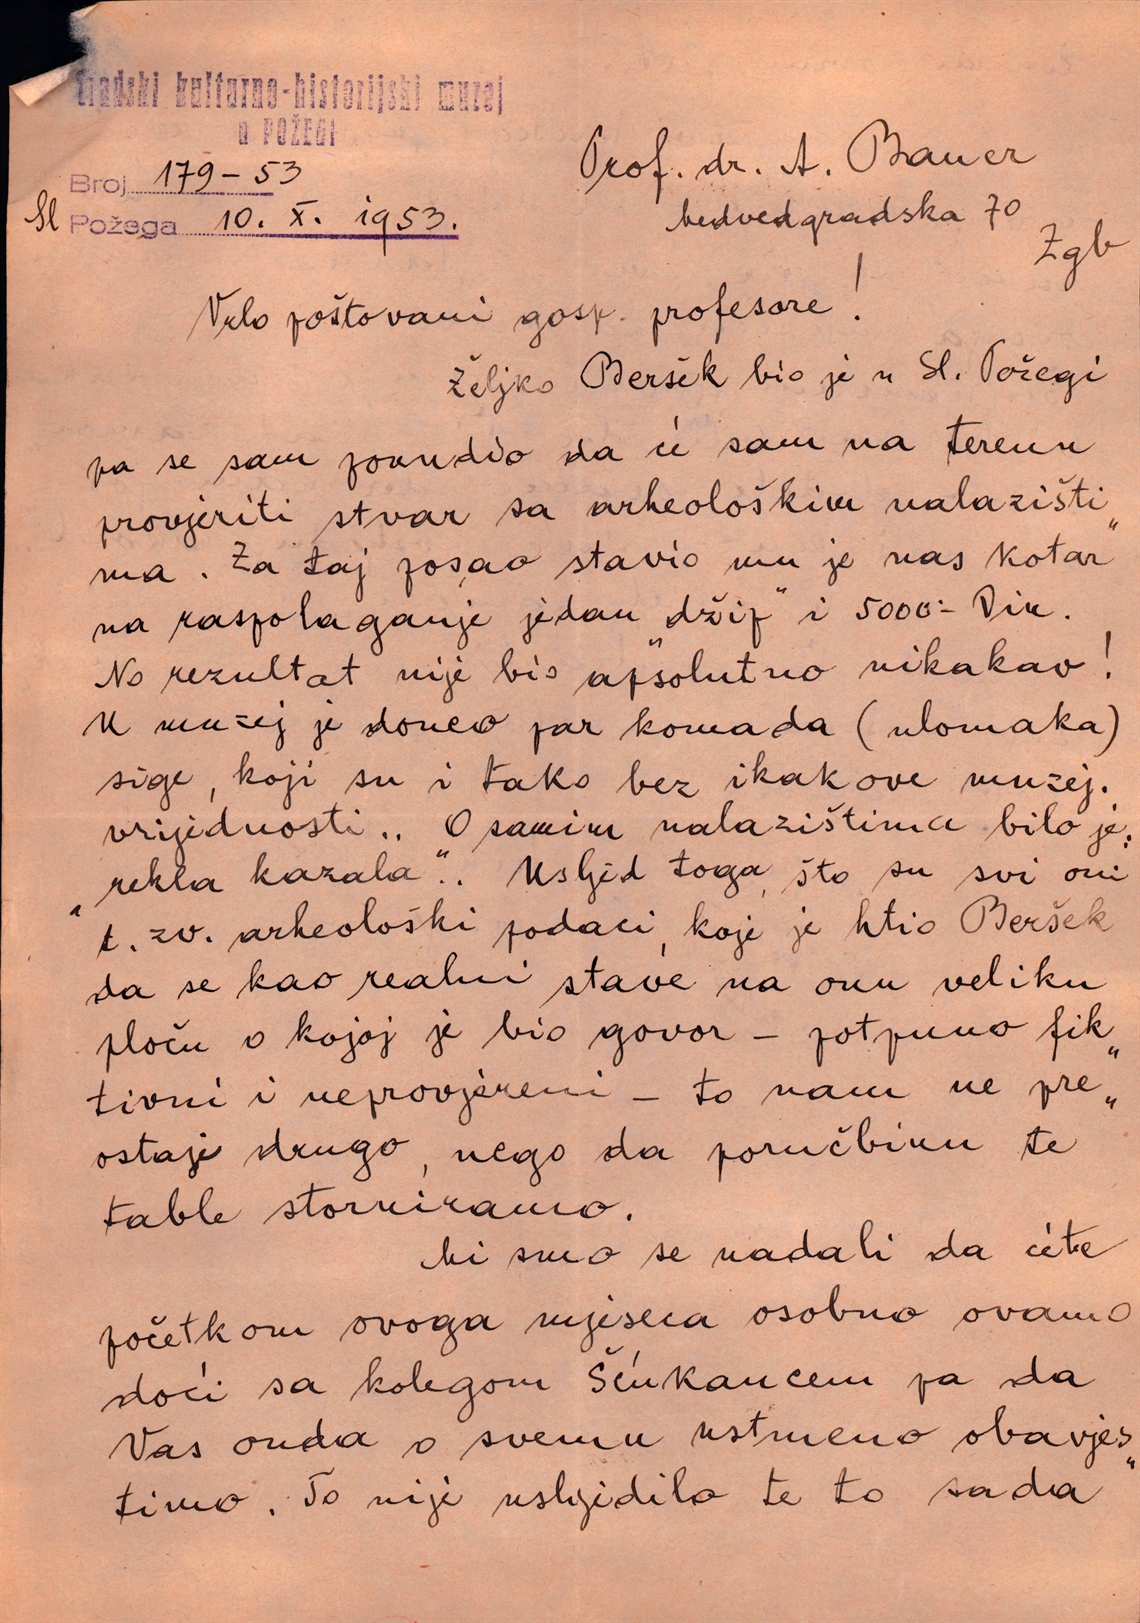 Gradski kulturno-historijski muzej
u POŽEGI
Broj 179-53
Sl Požega 10. X. 1953.
Prof. dr. A. Bauer
Medvedgradska 70
Zgb
Vrlo poštovani gosp. profesore!
Željko Beršek bio je u Sl. Požegi
pa se sam ponudio da će sam na terenu
provjeriti stvar sa arheološkim nalazišti„
ma. Za taj posao stavio mu je naš kotar
na raspolaganje jedan „džip“ i 5000:- Din.
No rezultat nije bio apsolutno nikakav!
U muzej je doneo par komada (ulomaka)
sige, koji su i tako bez ikakove muzej.
vrijednosti.. O samim nalazištima bilo je:
„rekla kazala“.. Usljed toga, što su svi oni
t. zv. arheološki podaci, koje je htio Beršek
da se kao realni stave na onu veliku
ploču o kojoj je bio govor - potpuno fik„
tivni i neprovjereni - to nam ne pre„
ostaje drugo, nego da poručbinu te
table storniramo.
Mi smo se nadali da ćete
početkom ovoga mjeseca osobno ovamo
doći sa kolegom Šeúkancem pa da
Vas onda o svemu ustmeno obavjes„
timo. To nije usljedilo te to sada